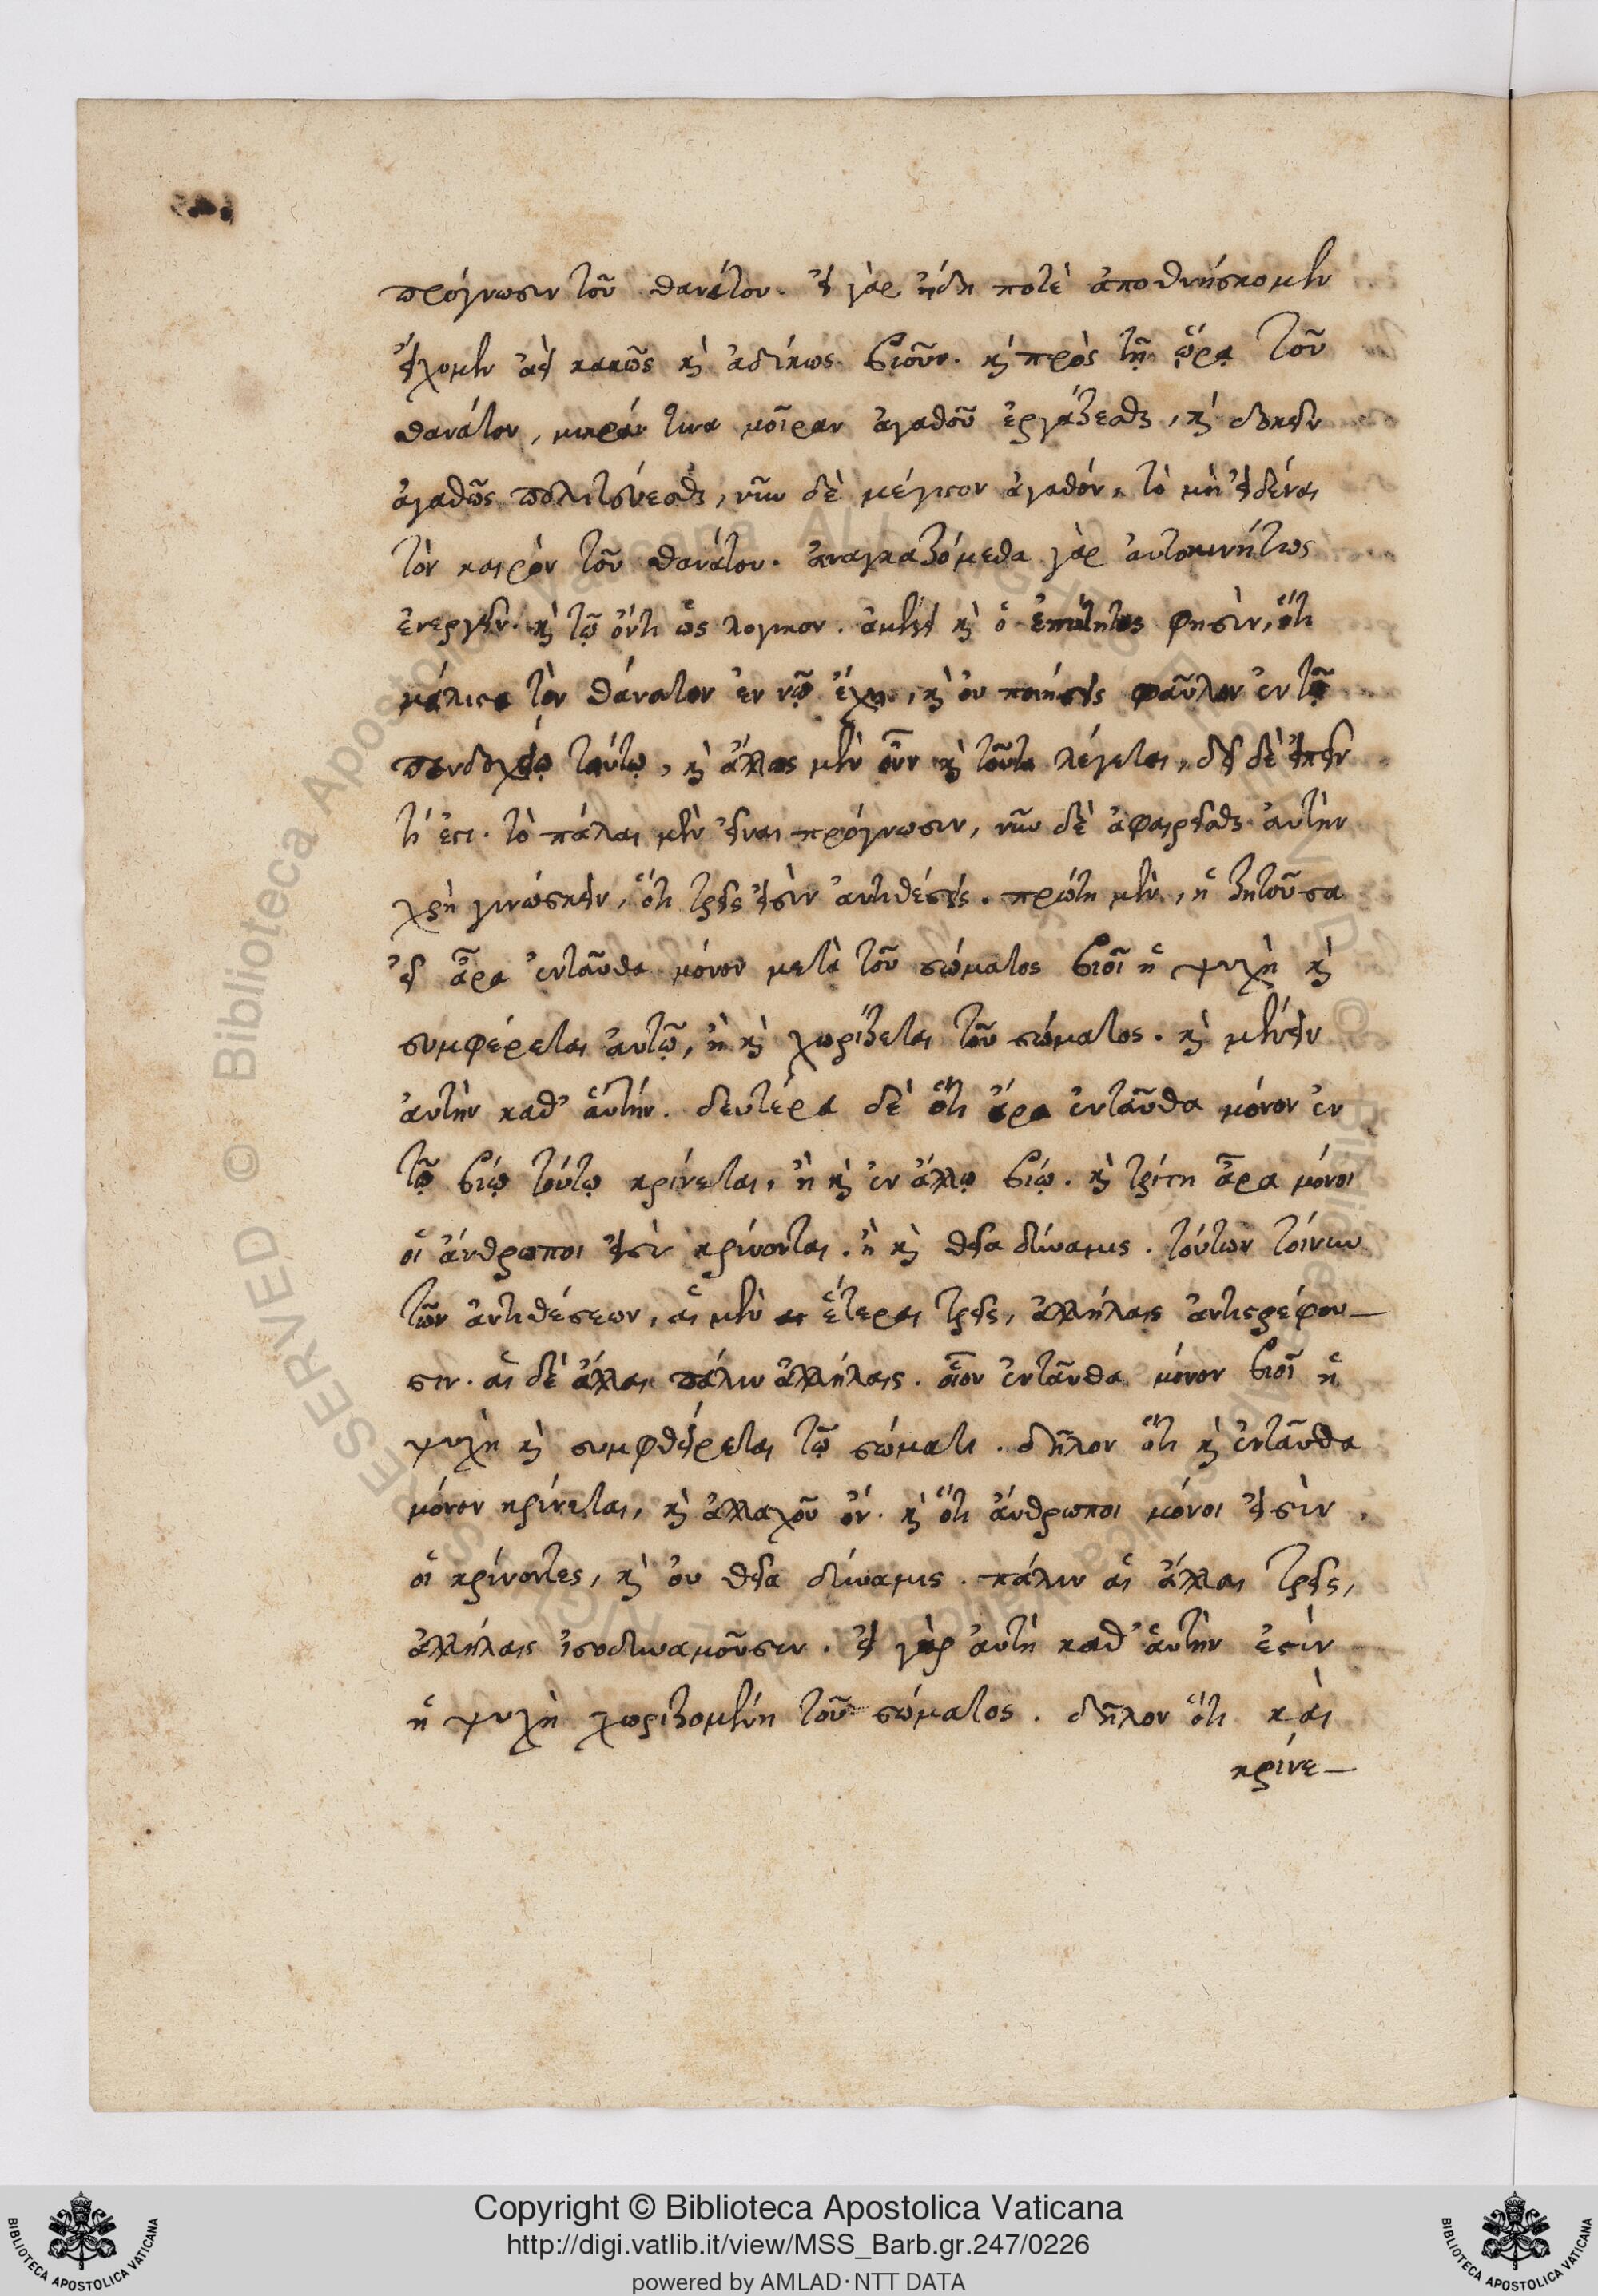 πρόγνωσιν τοῦ θανάτου. εἰ γὰρ ᾔδη ποτὲ ἀποθνήσκομεν
εἴχομεν ἀεὶ κακῶς καὶ ἀδίκως βιοῦν. καὶ πρὸς τῇ ὥρᾳ τοῦ
θανάτου, μικράν τινα μοῖραν ἀγαθοῦ ἐργάζεσθαι, καὶ δοκεῖν
ἀγαθῶς πολιτεύεσθαι, νῦν δὲ μέγιστον ἀγαθόν, τὸ μὴ εἰδέναι
τὸν καιρὸν τοῦ θανάτου. ἀναγκαζόμεθα γὰρ αὐτοκινήτως
ἐνεργεῖν. καὶ τῷ ὄντι ὡς λογικον. ἀμέλει καὶ ὁ ἐπίκτητος φησὶν, ὅτι
μάλιστα τὸν θάνατον ἐν νῷ ἔχῃ, καὶ οὐ ποιήσεις φαῦλον ἐν τῷ
πανδοχείῳ τούτῳ, καὶ ἄλλως μὲν οὖν καὶ τοῦτο λέγεται, δεῖ δὲ εἰπεῖν
τί ἐστι. τὸ πάλαι μὲν εἶναι πρόγνωσιν, νῦν δὲ ἀφαιρεῖσθαι αὐτὴν
χρὴ γινώσκειν, ὅτι τρεῖς εἰσὶν ἀντιθέσεις. πρώτη μὲν, ἡ ζητοῦσα
εἰ ἆρα ἐνταῦθα μόνον μετὰ τοῦ σώματος βιοῖ ἡ ψυχὴ καὶ
συμφέρεται αὐτῷ, ἢ καὶ χωρίζεται τοῦ σώματος. καὶ μένειν
αὐτὴν καθ' ἑαυτήν. δευτέρα δὲ ὅτι ἄρα ἐνταῦθα μόνον ἐν
τῷ βίῳ τούτῳ κρίνεται, ἢ καὶ ἐν ἄλλῳ βίῳ. καὶ τρίτη ἆρα μόνοι
οἱ ἄνθρωποι εἰσιν κρίνονται. ἢ καὶ θεῖα δύναμις. τούτων τοίνυν
τῶν ἀντιθέσεων, αἱ μὲν αι ἕτεραι τρεῖς, ἀλλήλαις ἀντιστρέφου—
σιν. αἱ δὲ ἄλλαι πάλιν ἀλλήλαις. οἷον ἐνταῦθα μόνον βιοῖ ἡ
ψυχὴ καὶ συμφθείρεται τῷ σώματι. δῆλον ὅτι καὶ ἐνταῦθα
μόνον κρίνεται, καὶ ἀλλαχοῦ οὐ. καὶ ὅτι ἄνθρωποι μόνοι εἰσὶν
οἱ κρίνοντες, καὶ οὐ θεῖα δύναμις. πάλιν αἱ ἄλλαι τρεῖς,
ἀλλήλαις ἰσοδυναμοῦσιν. εἰ γὰρ αὐτὴ καθ' ἑαυτὴν ἐστίν
ἡ ψυχὴ χωριζομένη τοῦ σώματος. δῆλον ὅτι καὶ
κρίνε—
Copyright © Biblioteca Apostolica Vaticana
http://digi.vatlib.it/view/MSS_Barb.gr.247/0226
powered by AMLAD·NTT DATA
BIBLIOTECA APOSTOLICA VATICANA
BIBLIOTECA APOSTOLICA VATICANA